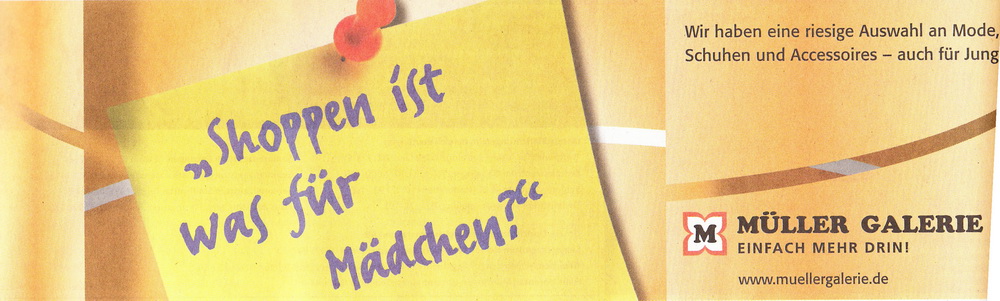 „Shoppen ist
was für
Mädchen?“
Wir haben eine riesige Auswahl an Mode,
Schuhen und Accessoires – auch für Jung
M MÜLLER GALERIE
EINFACH MEHR DRIN!
www.muellergalerie.de